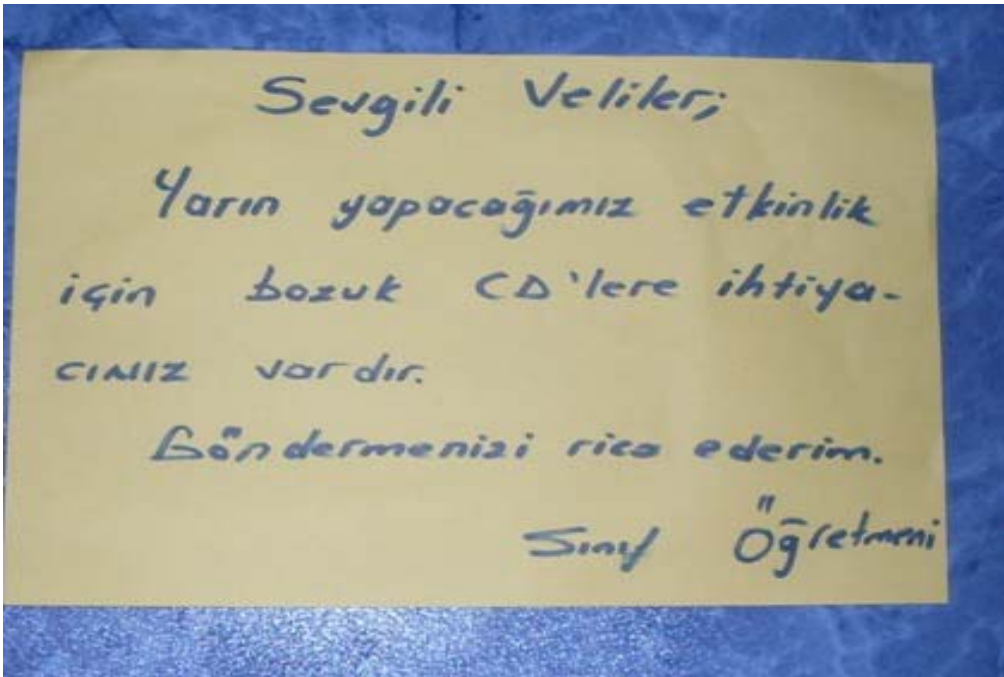 Sevgili Veliler;
Yarın yapacağımız etkinlik
için bozuk CD'lere ihtiya-
cımız vardır.
Göndermenizi rica ederim.
Sınıf Öğretmeni